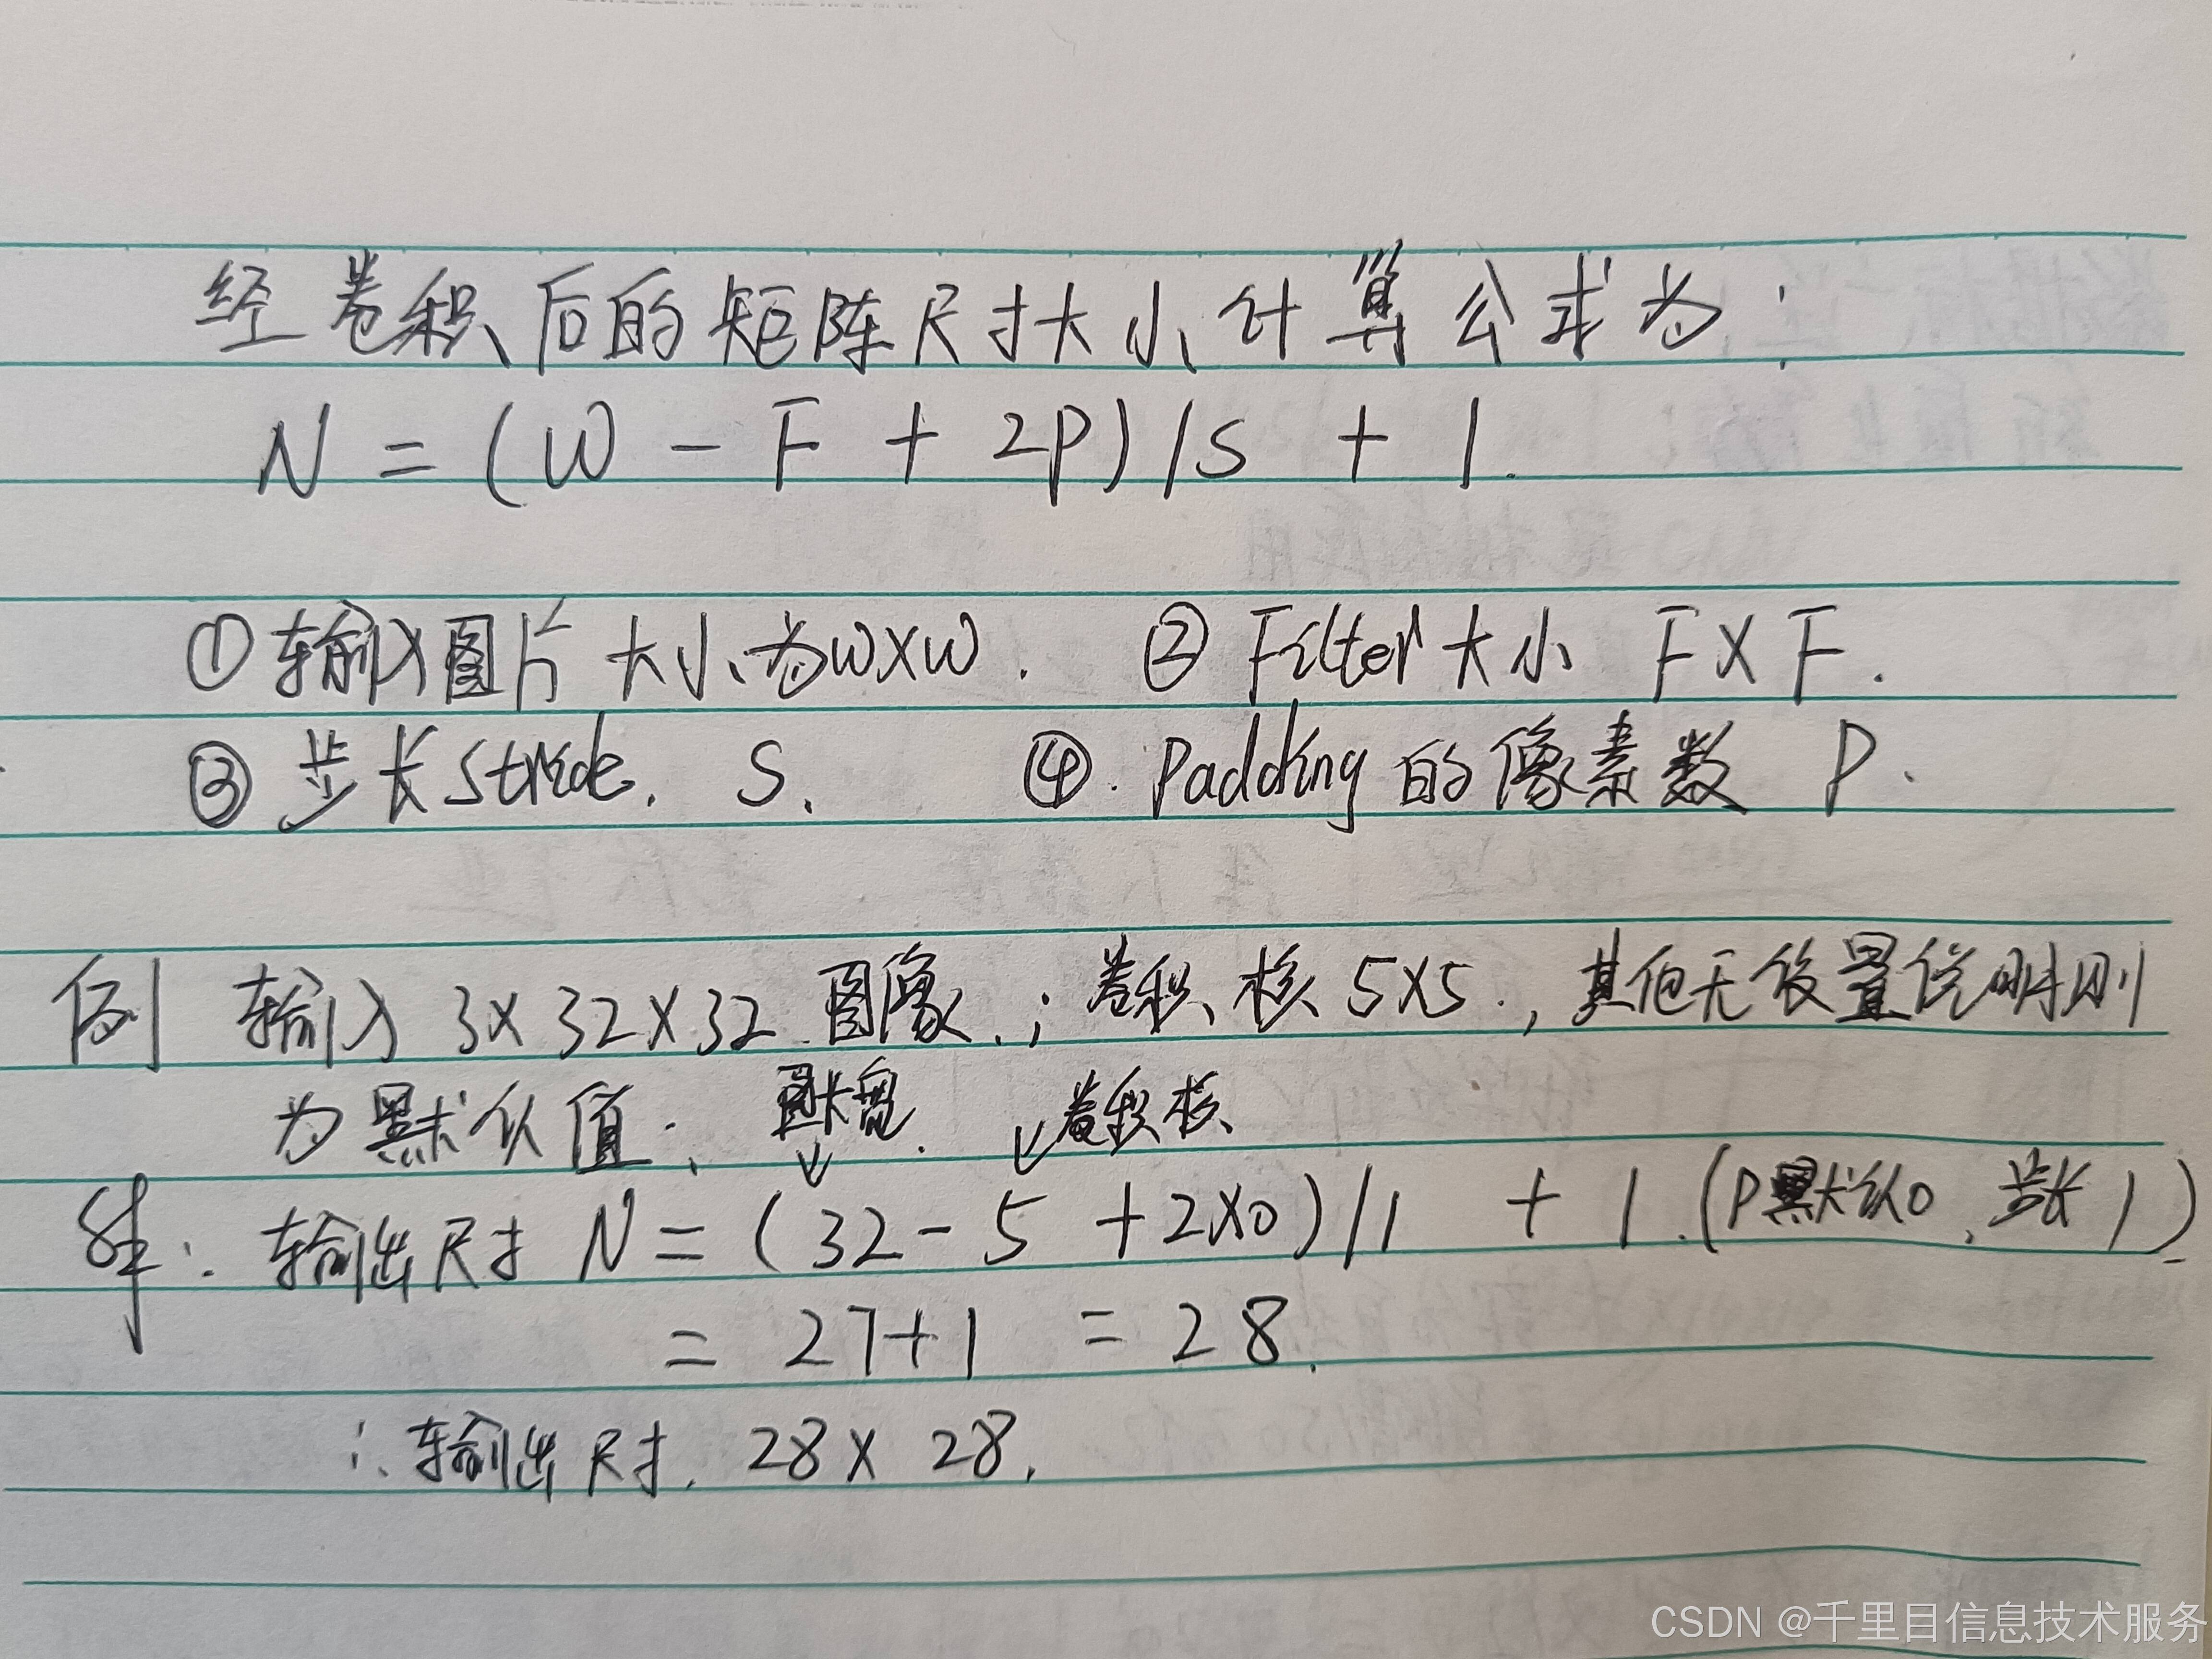 经卷积后的矩阵尺寸大小计算公式为:
N = (W - F + 2P)/S + 1.
①输入图片大小为W×W. ②Filter大小 F×F.
③步长Stride. S. ④.Padding的像素数 P.
例 输入 3×32×32 图像.;卷积核5×5.,其他无设置说明则
为默认值; 图长宽. 卷积核
解: 输出尺寸 N = (32-5 +2×0)/1 + 1.(P默认0,步长1)
= 27+1 = 28.
∴输出尺寸. 28×28.
CSDN @千里目信息技术服务